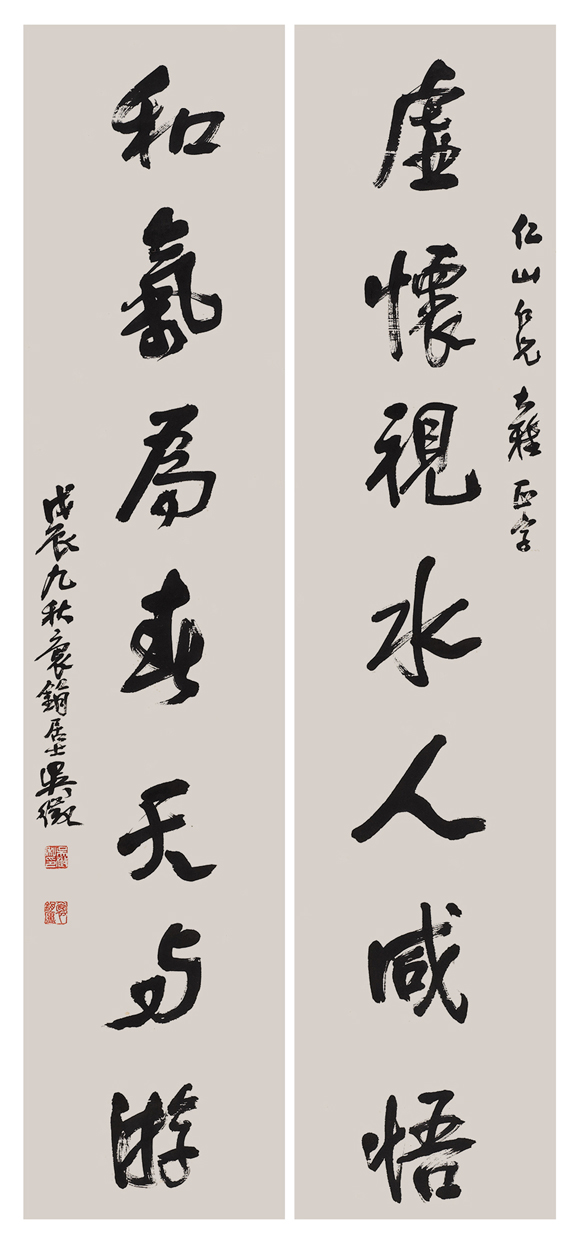 仁山仁兄大雅正字
虚懷視水人咸悟
和氣為春天與游
戊辰九秋袌鋗居士吳徵